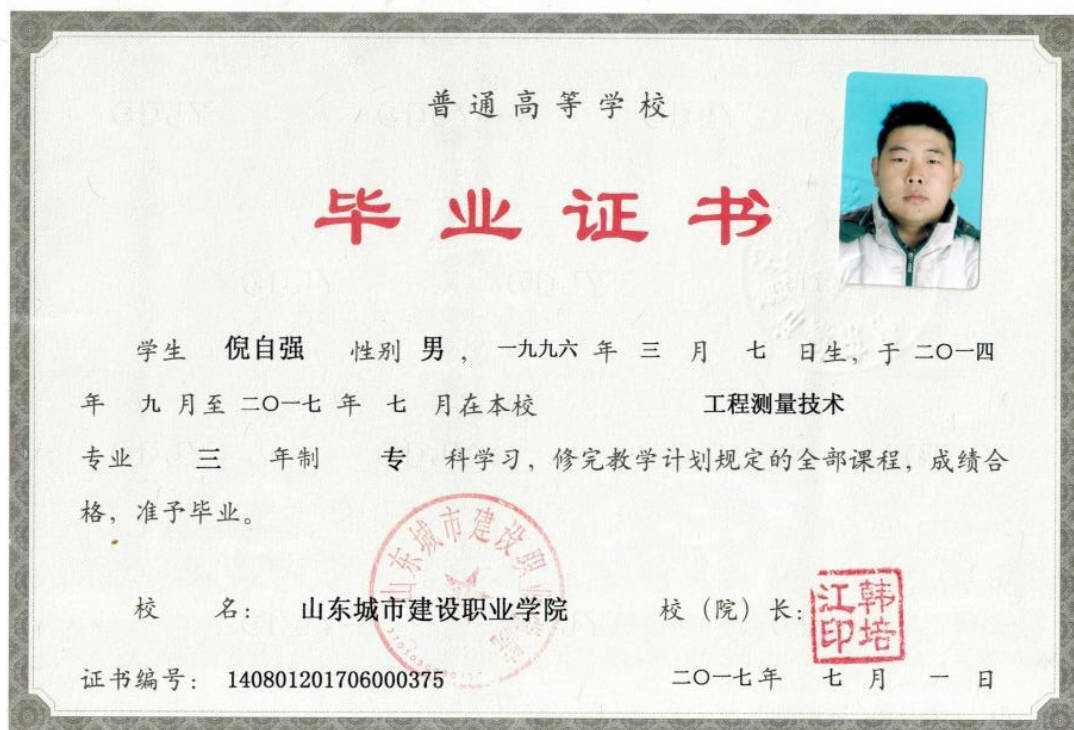 普通高等学校
毕业证书
学生 倪自强 性别 男 ，一九九六 年 三 月 七 日生，于 二〇一四
年 九 月至 二〇一七 年 七 月在本校 工程测量技术
专业 三 年制 专 科学习，修完教学计划规定的全部课程，成绩合
格，准予毕业。
山东城市建设职业学院
校 名： 山东城市建设职业学院 校（院）长：
韩培江印
证书编号： 140801201706000375 二〇一七 年 七 月 一 日